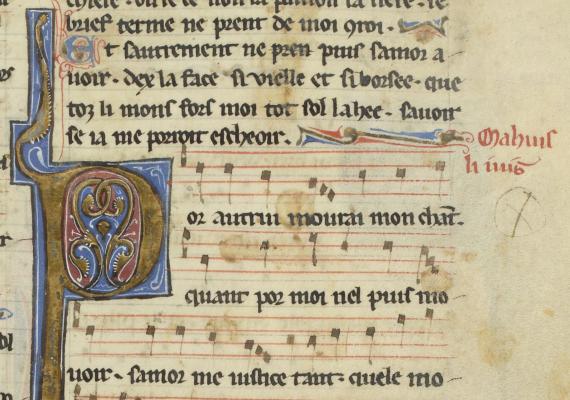 brief terme ne prent de moi ꝯroi.
Et sautrement ne pren puis samor a
uoir. dex la face si uielle et si borsee. que
toz li mons fors moi tot sol lahee. sauoir
se ia me porroit escheoir.
Mahuis
li iuis
Por autrui mourai mon chat.
quant por moi nel puis mo
uoir. samor me iustice tant. quele mo